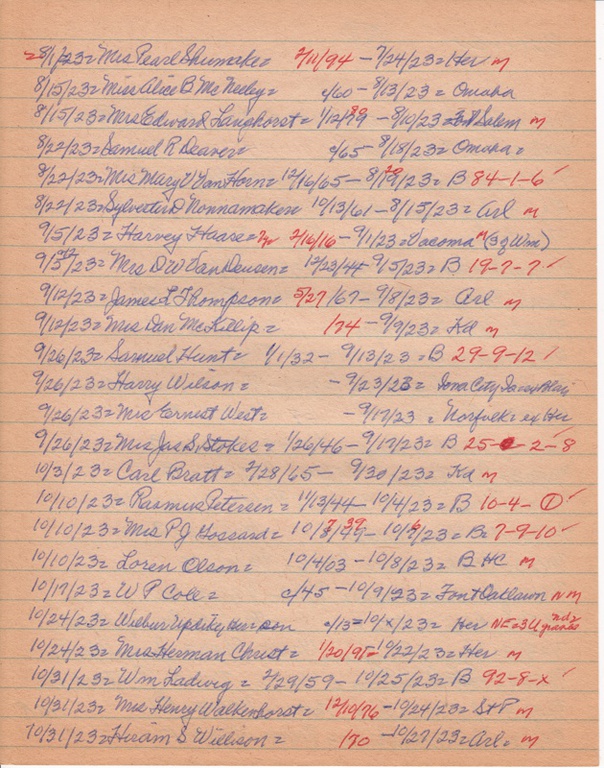 8/1/23 = Mrs Pearl Shumake = 2/11/94 - 7/24/23 = Her m
8/15/23 = Miss Alice B McNeeley = c/60 - 8/13/23 = Omaha
8/15/23 = Mrs Edward Langhorst = 1/12/79 80 - 8/10/23 = Salem m
8/22/23 = Samuel R Deaver = c/65 - 8/18/23 = Omaha =
8/22/23 = Mrs Mary V Van Horn = 12/16/65 - 8/19/23 = B 84-1-6 ✓
8/22/23 = Sylvester D Nonnamaker = 10/13/61 - 8/15/23 = Arl m
9/5/23 = Harvey Haase = 2/16/16 - 9/1/23 = Tacoma m (3 g Wm)
9/5/23 = Mrs D W Van Deusen = 12/23/44 - 9/5/23 = B 19-7-7 ✓
9/12/23 = James L Thompson = 5/27/67 - 9/8/23 = Arl m
9/12/23 = Mrs Dan McKillip = /74 - 9/9/23 = Kd m
9/26/23 = Samuel Hunt = 1/1/32 - 9/13/23 = B 29-9-12 ✓
9/26/23 = Harry Wilson = - 9/23/23 = Iowa City Ia = ex Blair
9/26/23 = Mrs Ernest West = - 9/17/23 = Norfolk = ex Her
9/26/23 = Mrs Jas S Stokes = 1/26/46 - 9/17/23 = B 25-2-8
10/3/23 = Carl Bratt = 2/28/65 - 9/30/23 = Kd m
10/10/23 = Rasmus Petersen = 11/13/44 - 10/4/23 = B 10-4-① ✓
10/10/23 = Mrs P J Gossard = 10/8/49 7 39 - 10/6/23 = B = 7-9-10 ✓
10/10/23 = Loren Olson = 10/4/03 - 10/8/23 = B HC m
10/17/23 = W P Cole = c/45 - 10/9/23 = Font Oaklawn N M
10/24/23 = Wilbur Updity son c/13 = 10/x/23 = Her NE = 3U
10/24/23 = Mrs Herman Christ = 1/20/95 = 10/22/23 = Her m
10/31/23 = Wm Ladwig = 2/29/59 - 10/25/23 = B 92-8-x ✓
10/31/23 = Mrs Henry Walkenhorst = 12/10/76 - 10/24/23 = St P m
10/31/23 = Hiram S Willison = /70 - 10/27/23 = Arl = m